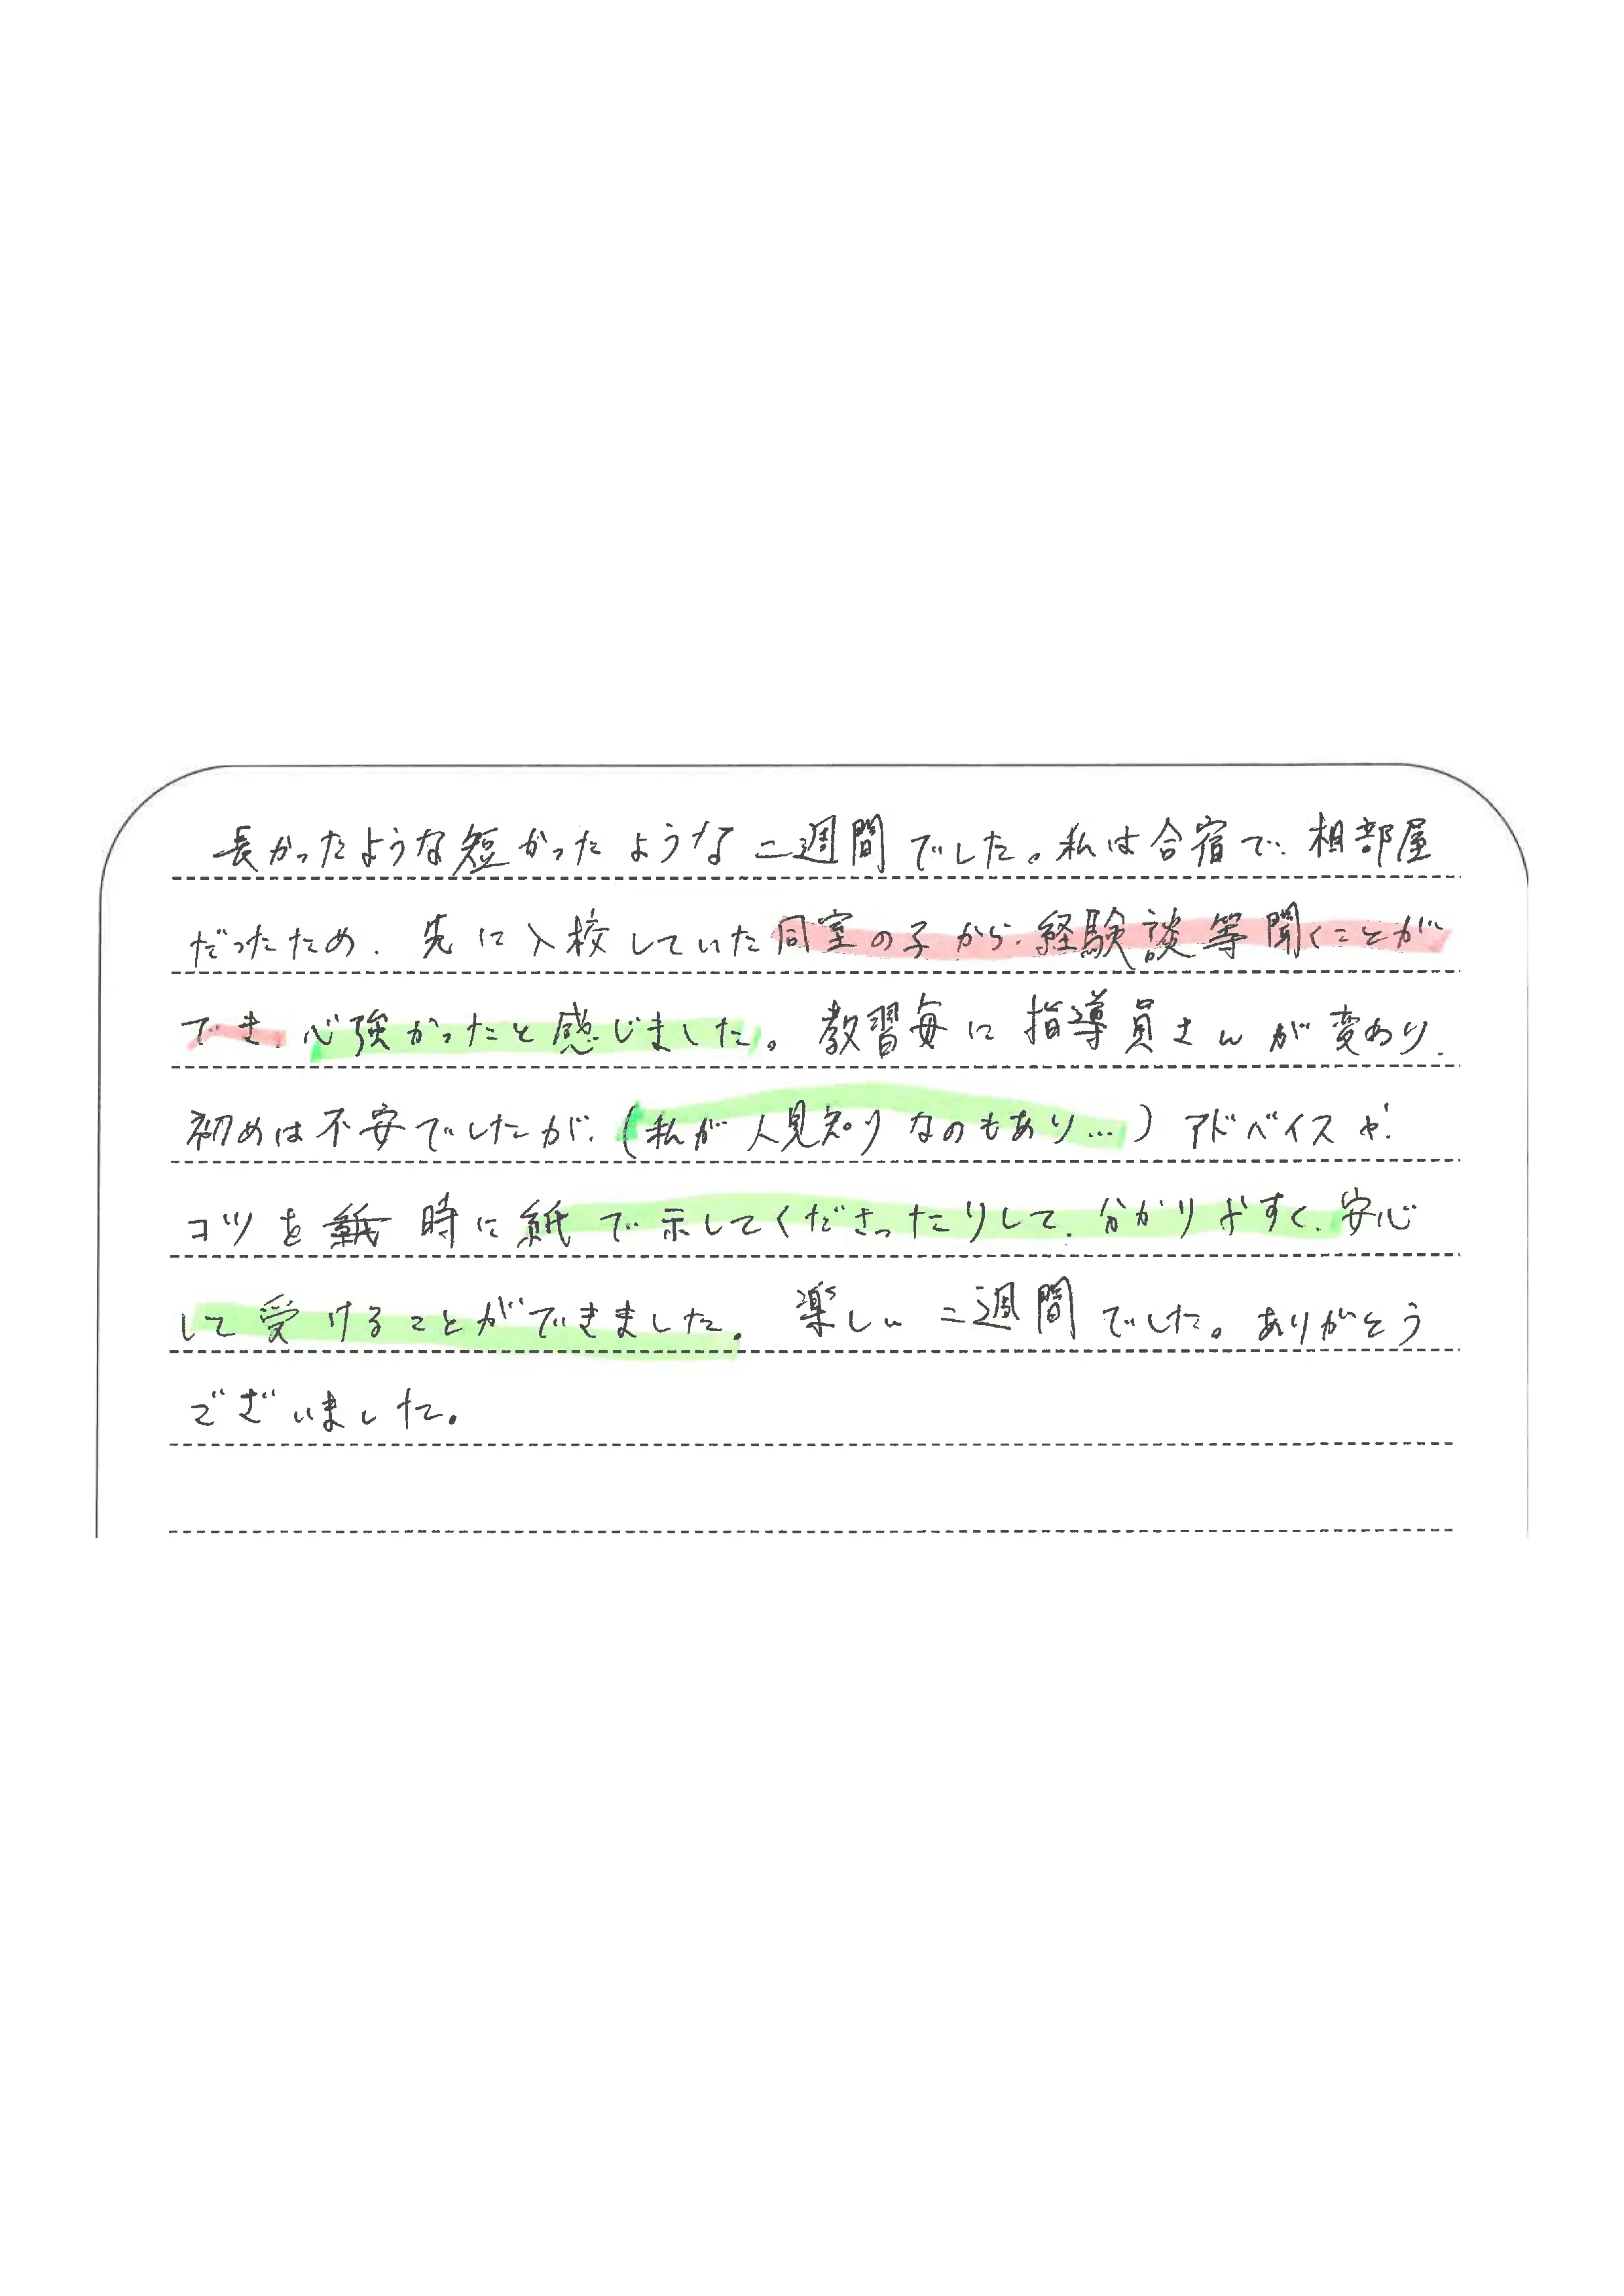 長かったような短かったような二週間でした。私は合宿で、相部屋
だったため、先に入校していた同室の子から、経験談等聞くことが
でき、心強かったと感じました。教習毎に指導員さんが変わり、
初めは不安でしたが、(私が人見知りなのもあり…)アドバイスや、
コツを時に紙で示してくださったりして、分かりやすく、安心
して受けることができました。楽しい二週間でした。ありがとう
ございました。